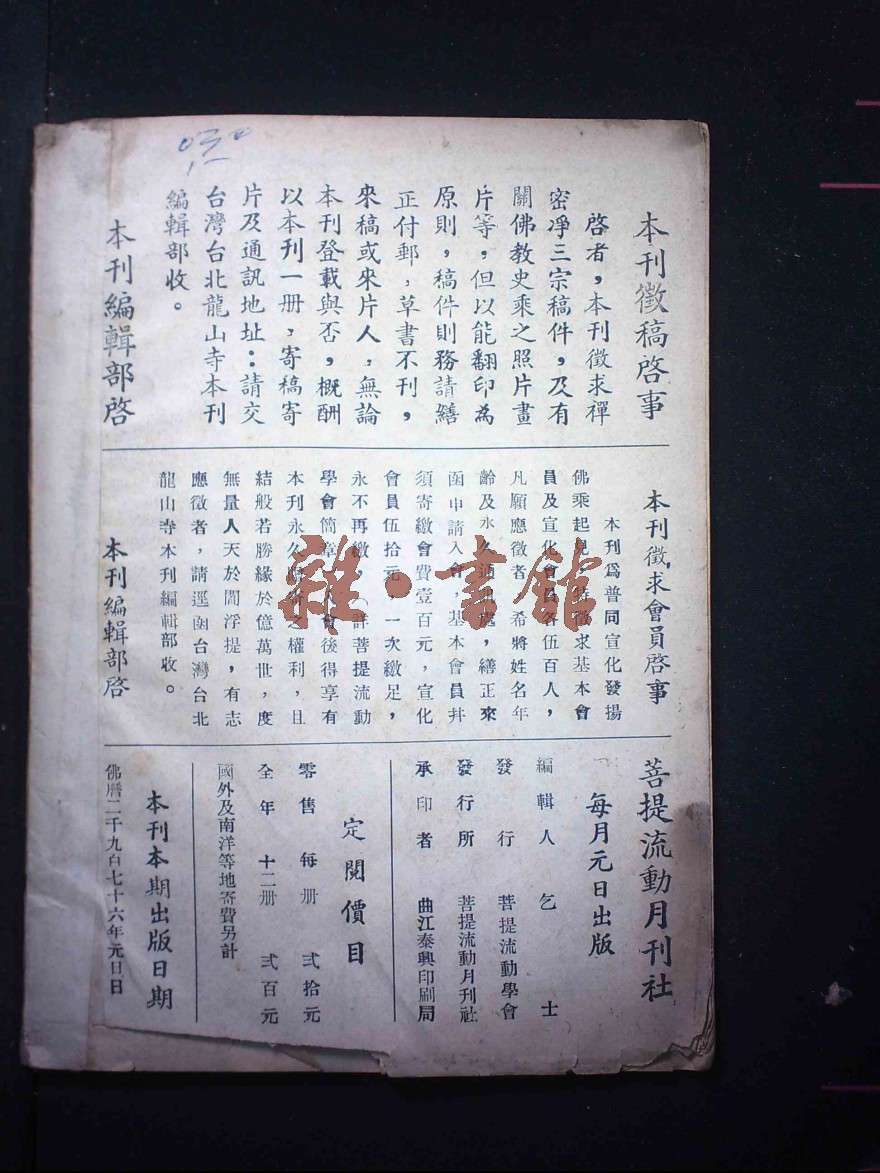 030
本刊徵稿啓事
啓者，本刊徵求禪
密凈三宗稿件，及有
關佛教史乘之照片畫
片等，但以能翻印為
原則，稿件則務請繕
正付郵，草書不刊，
來稿或來片人，無論
本刊登載與否，概酬
以本刊一册，寄稿寄
片及通訊地址：請交
台灣台北龍山寺本刊
編輯部收。
本刊編輯部啓
本刊徵求會員啓事
本刊爲普同宣化發揚
佛乘起見，特徵求基本會
員及宣化會員各伍百人，
凡願應徵者，希將姓名年
齡及永久通訊處，繕正來
函申請入會，基本會員幷
須寄繳會費壹百元，宣化
會員伍拾元，一次繳足，
永不再繳，（詳菩提流動
學會簡章）入會後得享有
本刊永久之權利，且
結般若勝緣於億萬世，度
無量人天於閻浮提，有志
應徵者，請逕函台灣台北
龍山寺本刊編輯部收。
本刊編輯部啓
菩提流動月刊社
每月元日出版
編輯人 乞士
發行 菩提流動學會
發行所 菩提流動月刊社
承印者 曲江泰興印刷局
定閱價目
零售 每册 弍拾元
全年 十二册 弍百元
國外及南洋等地寄費另計
本刊本期出版日期
佛曆二千九百七十六年元日
雜·書館